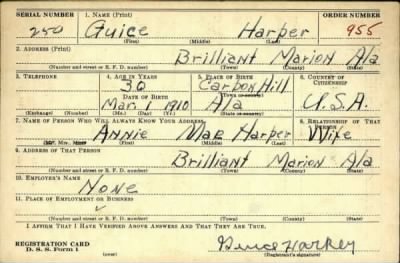 SERIAL NUMBER 1. NAME (Print) ORDER NUMBER
250 Guice Harper 955
(First) (Middle) (Last)
2. ADDRESS (Print)
Brilliant Marion Ala
(Number and street or R. F. D. number) (Town) (County) (State)
3. TELEPHONE 4. AGE IN YEARS 5. PLACE OF BIRTH 6. COUNTRY OF CITIZENSHIP
30 Carbon Hill
DATE OF BIRTH (Town or county)
Mar. 1 1910 Ala U.S.A.
(Exchange) (Number) (Mo.) (Day) (Yr.) (State or country)
7. NAME OF PERSON WHO WILL ALWAYS KNOW YOUR ADDRESS 8. RELATIONSHIP OF THAT PERSON
Annie Mae Harper Wife
(Mr., Mrs., Miss) (First) (Middle) (Last)
9. ADDRESS OF THAT PERSON
Brilliant Marion Ala
(Number and street or R. F. D. number) (Town) (County) (State)
10. EMPLOYER'S NAME
None
11. PLACE OF EMPLOYMENT OR BUSINESS
(Number and street or R. F. D. number) (Town) (County) (State)
I AFFIRM THAT I HAVE VERIFIED ABOVE ANSWERS AND THAT THEY ARE TRUE.
REGISTRATION CARD
D. S. S. Form 1 (Registrant's signature)